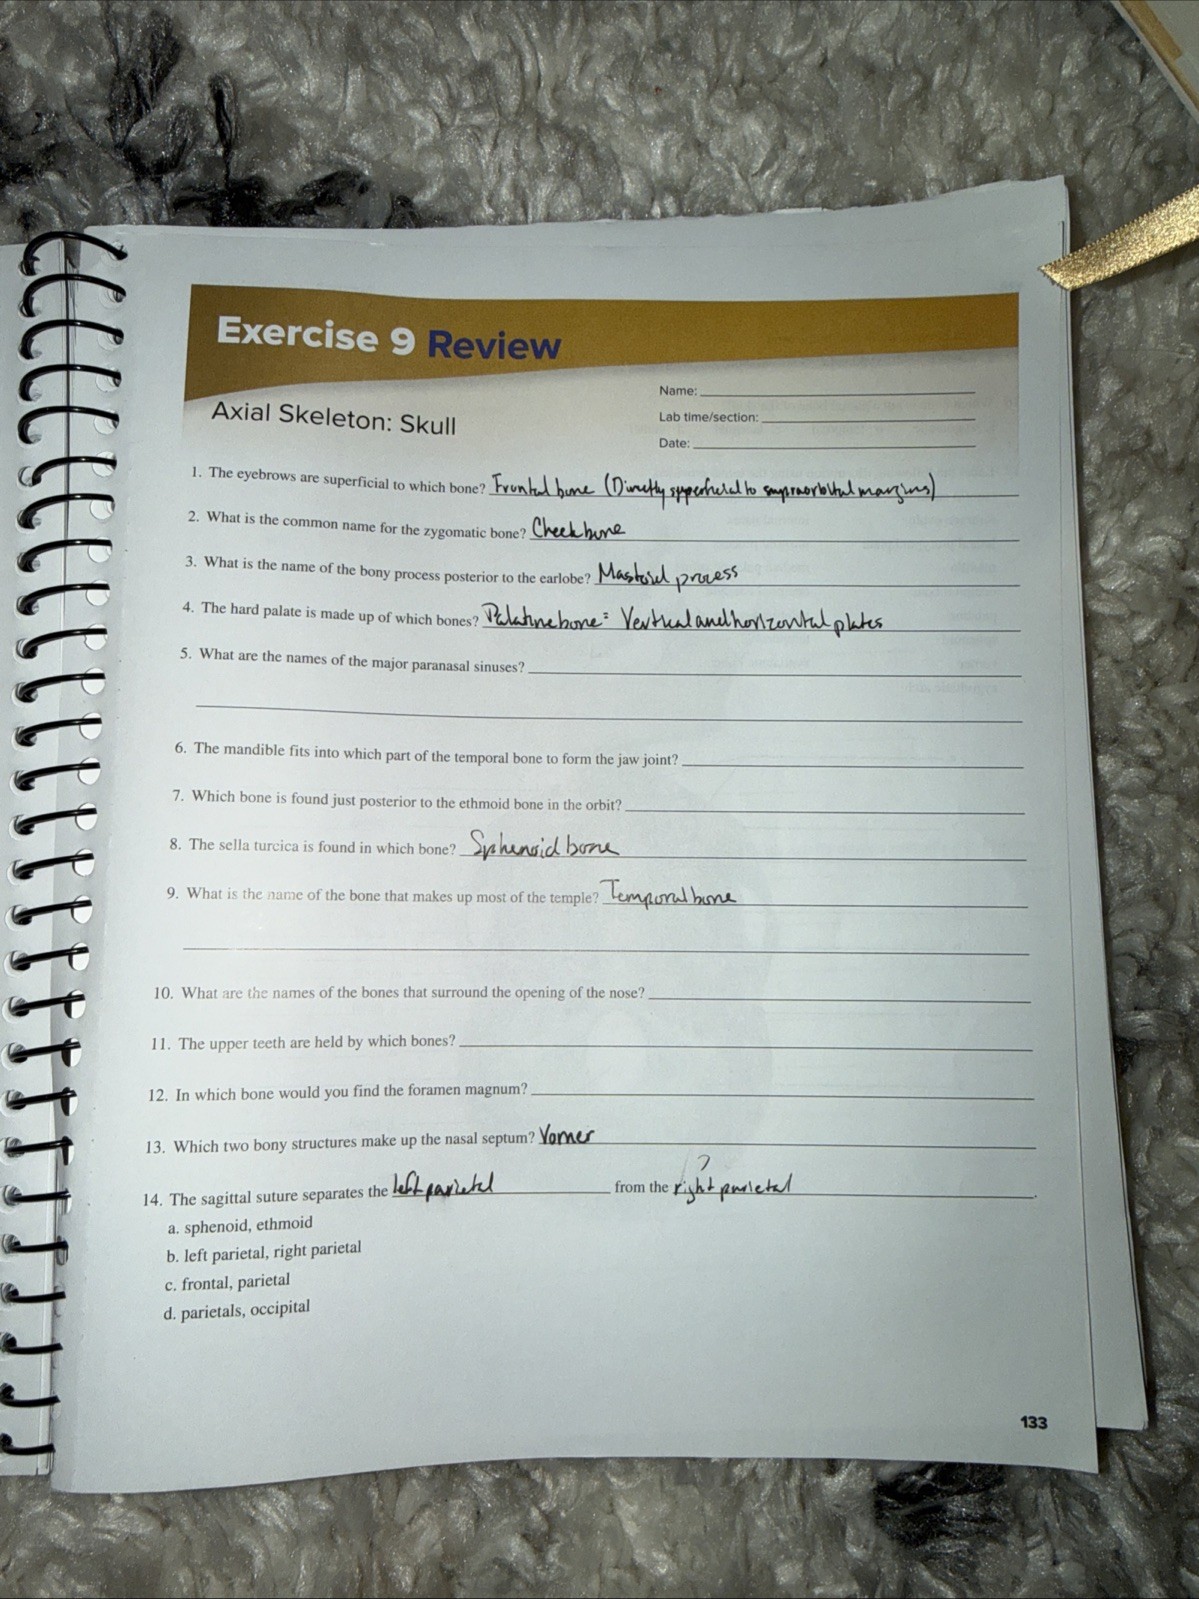 Exercise 9 Review
Axial Skeleton: Skull
Name:
Lab time/section:
Date:
1. The eyebrows are superficial to which bone? Frontal bone (Directly superficial to supraorbital margins)
2. What is the common name for the zygomatic bone? Cheekbone
3. What is the name of the bony process posterior to the earlobe? Mastoid process
4. The hard palate is made up of which bones? Palatine bone: Vertical and horizontal plates
5. What are the names of the major paranasal sinuses?
6. The mandible fits into which part of the temporal bone to form the jaw joint?
7. Which bone is found just posterior to the ethmoid bone in the orbit?
8. The sella turcica is found in which bone? Sphenoid bone
9. What is the name of the bone that makes up most of the temple? Temporal bone
10. What are the names of the bones that surround the opening of the nose?
11. The upper teeth are held by which bones?
12. In which bone would you find the foramen magnum?
13. Which two bony structures make up the nasal septum? Vomer
?
14. The sagittal suture separates the left parietal from the right parietal.
a. sphenoid, ethmoid
b. left parietal, right parietal
c. frontal, parietal
d. parietals, occipital
133